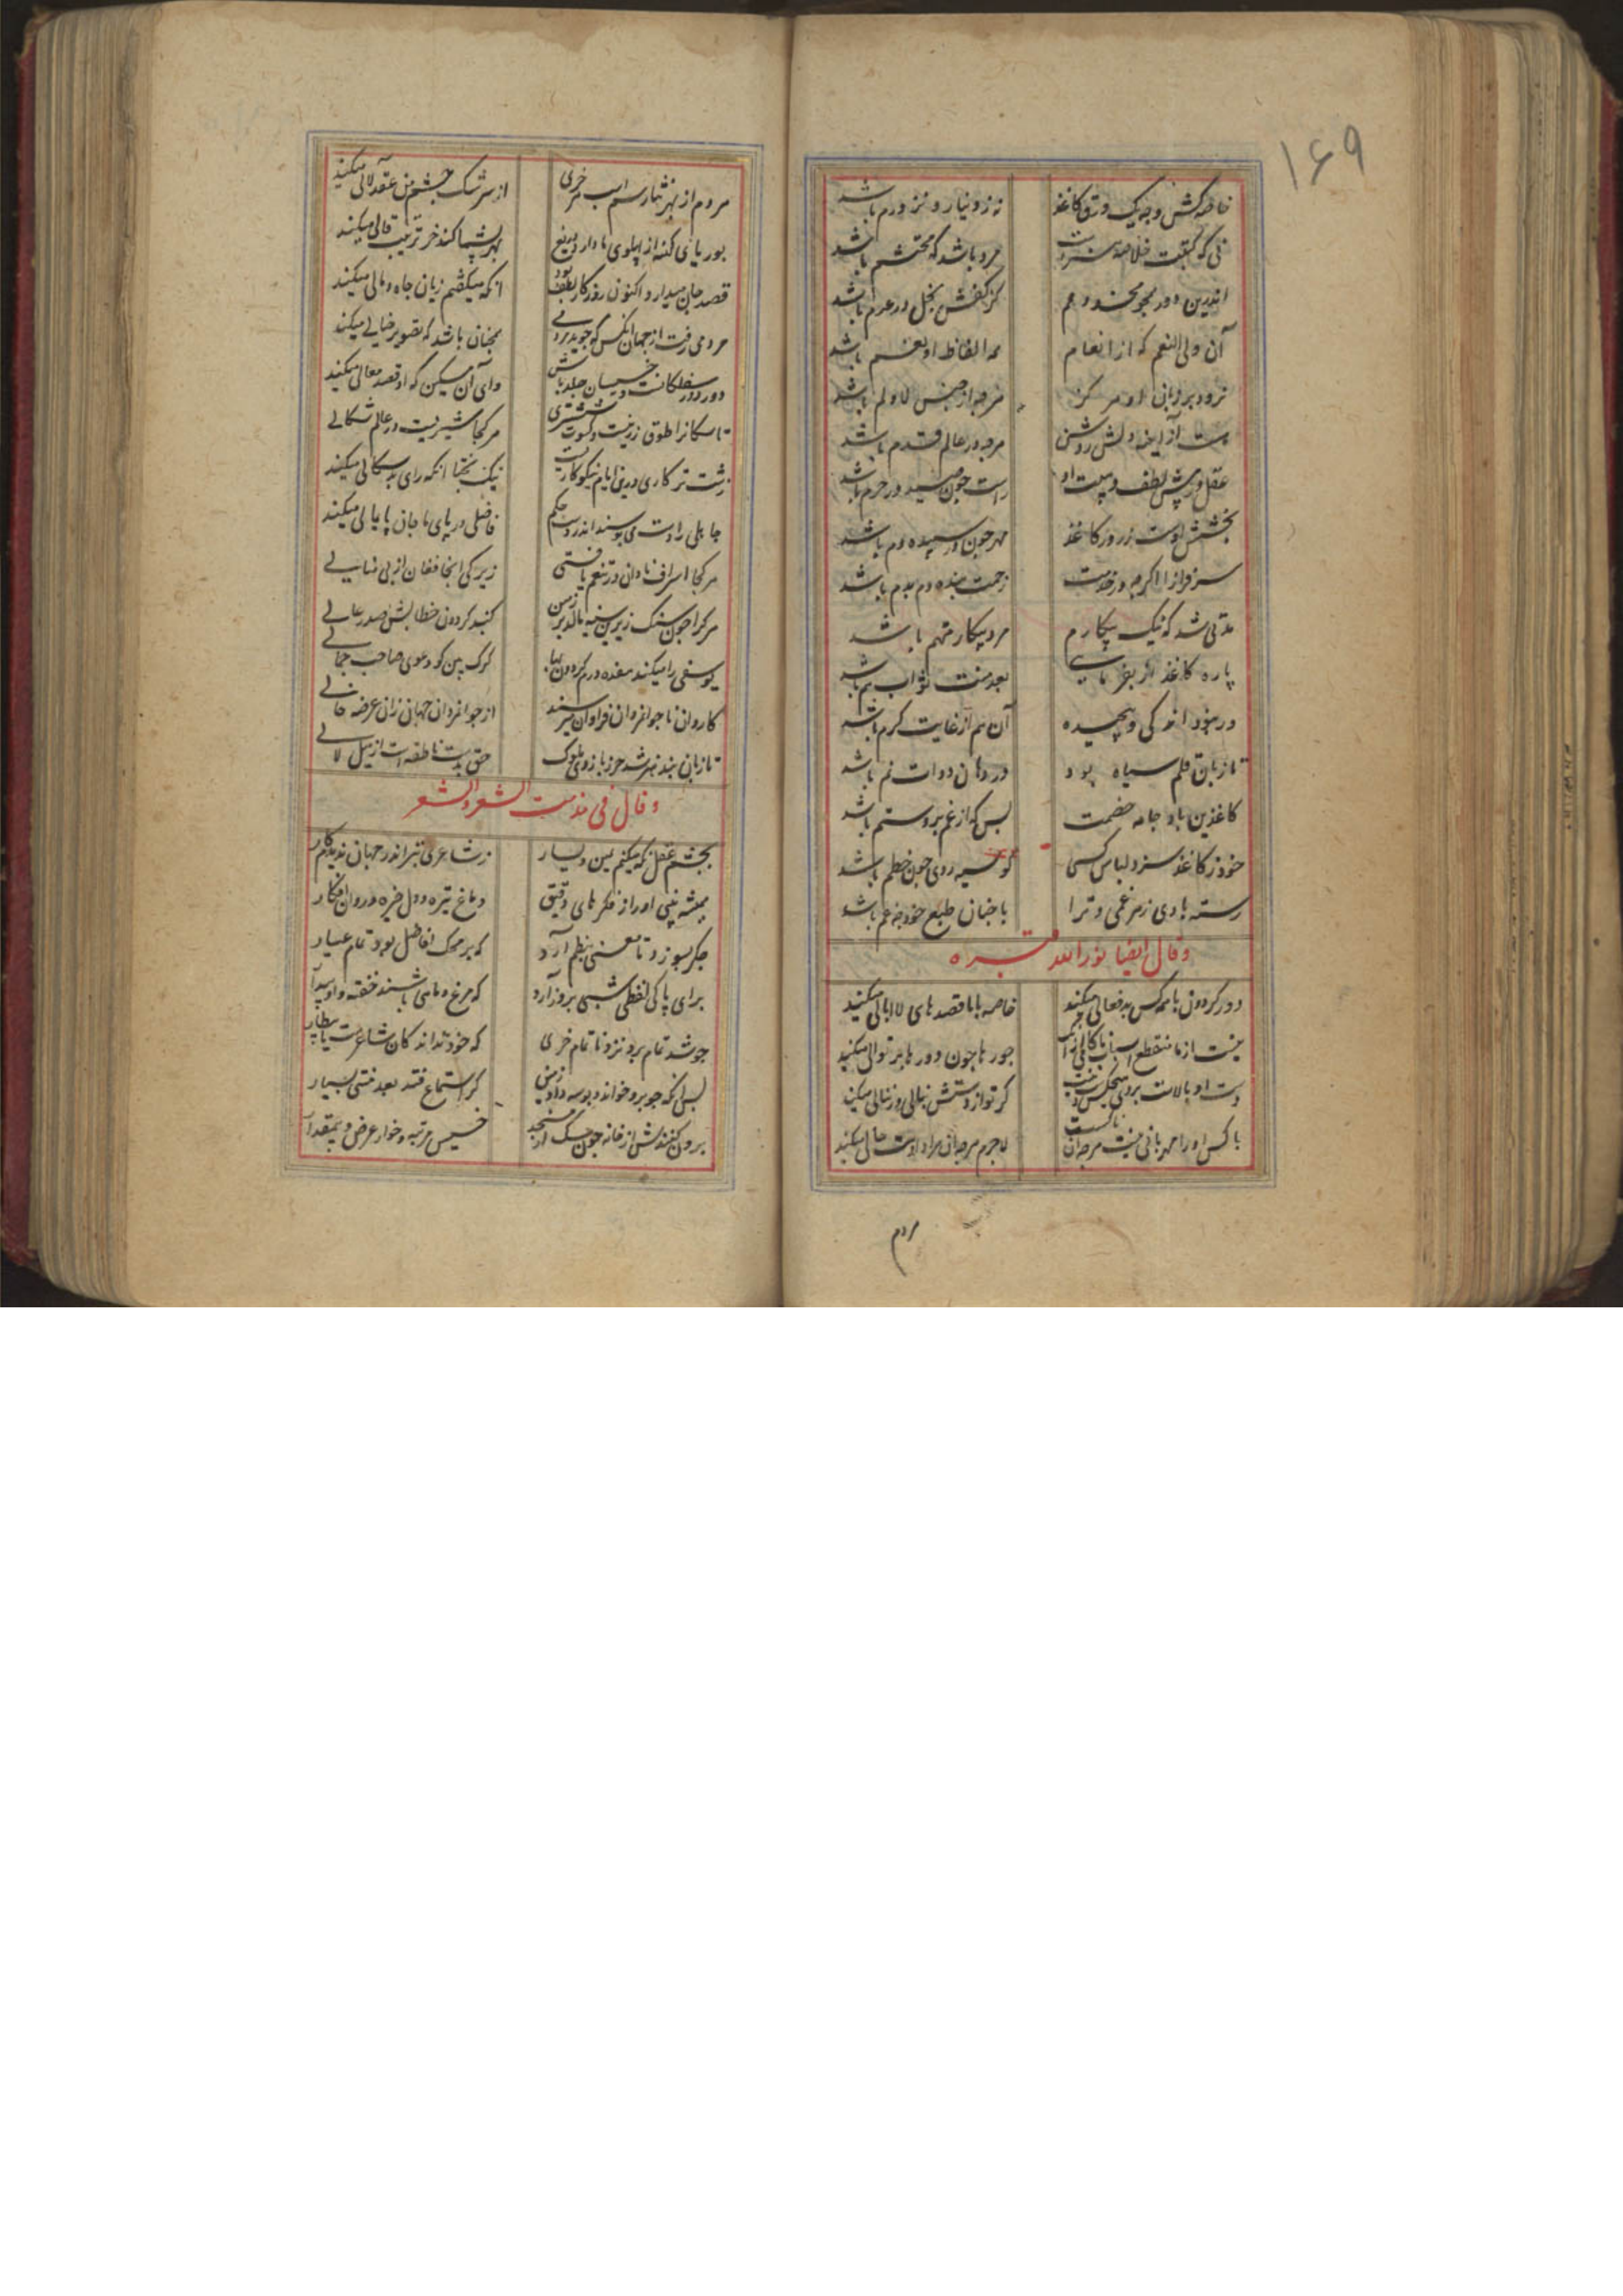 ۱۶۹
خاصه کش وجه یک ورق کاغذ نه ز دینار و نز درم باشد
نی که گیتیت خلاصه مرد باشد که محتشم باشد
اندرین دور بجز مخدومم کز کفش بخل در عدم باشد
آن ولی النعم که از انعام همه الفاظ او نعم باشد
نرود بر زبان او هرگز هرچه از جنس لا و لم باشد
هست از آینه دلش روشن هرچه در عالم قدم باشد
عقل در پیش لطف و هیبت او راست چون صید در حرم باشد
بخشش اوست زر و کاغذ مهر چون در سپیده دم باشد
سرفرازا اگرچه در خدمت زحمت بنده دم بدم باشد
مدتی شد که نیک بیکارم مرد بیکار متهم باشد
پاره کاغذ ار بفرمایی بعد منت ثواب هم باشد
ور بود اندکی و پیچیده آن هم از غایت کرم باشد
تا زبان قلم سیاه بود در دهان دوات نم باشد
کاغذین باد جامه خصمت بس که از غم برو ستم باشد
خود ز کاغذ سزد لباس کسی کو سیه روی چون خطم باشد
رسته بادی ز هر غمی و ترا با چنان طبع خود چه غم باشد
وقال ایضا نورالله قبره
دور گردون با همه کس بدفعالی میکند خاصه با ما قصدهای لاابالی میکند
نیست از ما منقطع جورها چون دورها بر توالی میکند
دست او بالاست بر وی هیچکس گر تو از دستش بنالی ور ننالی میکند
با کس او را مهربانی نیست هر چه آن لاجرم هر چه آن مراد اوست حالی میکند
مردم
مردم از بهر نثار سم اسب هر خری از سرشک چشم من عقد لآلی میکند
بوریای کهنه از پهلوی ما دارد دریغ بهر پشماکند خر ترتیب قالی میکند
قصد جان میدارد اکنون روزگار لطف بود آنکه میگفتیم زیان جاه و مالی میکند
مردمی رفت از جهان آنکس که جوید مردمی همچنان باشد که تصویر خیالی میکند
دور دور سفلگانست و خسیسان جلد باش وای آن مسکین که او قصد معالی میکند
تا سگانرا طوق زرینست و کسوت ششتری هر کجا شیریست در عالم شگالی
زشت تر کاری درین ایام نیکوکاریست نیک بختا آنکه رای بدسگالی میکند
جاهلی را دست می بوسند اندر دست حکم فاضلی در پای ما جان پایمالی میکند
هر کجا اسراف نادان در تنعم یافتی زیرکی آنجا فغان از بی منالی
هر کرا چون سنگ زیرین سینه مالد بر زمین گنبد گردون خطابش صدر عالی
یوسفی را میکنند هفده درم گردون بها گرگ بین کو دعوی صاحب جمالی
کاروان ناجوانمردان فراوان میرسند از جوانمردان جهان زان عرضه خالی
تا زبان بند هنر شد حرز بازوی ملوک حق بدست ناطقه است ار میل لالی
وقال فی مذمت الشعر والشعر
بچشم عقل نگه میکنم یمین و یسار ز شاعری بتر اندر جهان ندیدم کار
همیشه بینی او را ز فکرهای دقیق دماغ تیره و دل خیره و روان افکار
جگر بسوزد تا معنیی بنظم آرد که بر محک افاضل بود تمام عیار
برای پاکی لفظی شبی بروز آرد که مرغ و ماهی باشند خفته و او بیدار
چو شد تمام برد نزد ناتمام خری که خود نداند کان شاعرست یا بیطار
بس آنکه چو برو خواند و بوسه داد زمین گر استماع فتد بعد منتی بسیار
برون کنندش از خانه چون سگ از مسجد خسیس مرتبه و خوار عرض و بیمقدار